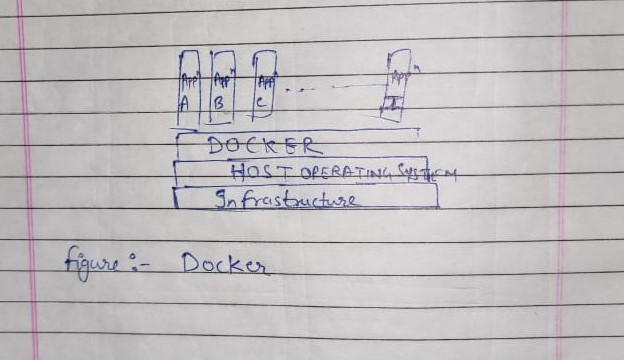 Appⁿ Appⁿ Appⁿ ..... Appⁿ
A B C
DOCKER
HOST OPERATING SYSTEM
Infrastructure
figure :- Docker